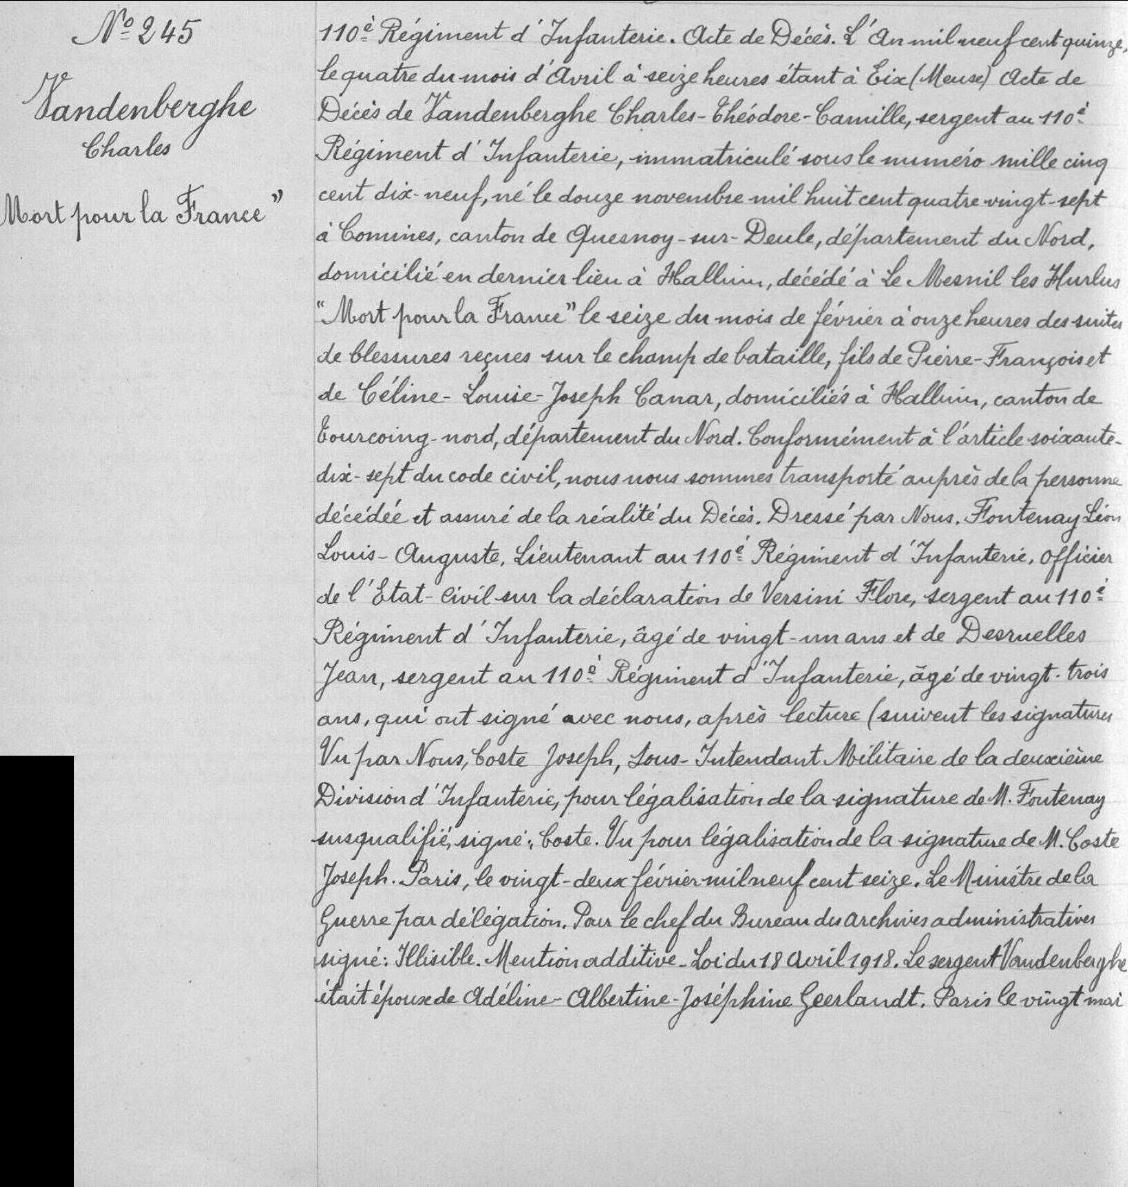 Nº 245
Vandenberghe
Charles
Mort pour la France"
110è Régiment d'Infanterie. Acte de Décès. L'An mil neuf cent quinze,
le quatre du mois d'Avril à seize heures étant à Eix (Meuse) Acte de
Décès de Vandenberghe Charles-Théodore-Camille, sergent au 110è
Régiment d'Infanterie, immatriculé sous le numéro mille cinq
cent dix-neuf, né le douze novembre mil huit cent quatre-vingt-sept
à Comines, canton de Quesnoy-sur-Deule, département du Nord,
domicilié en dernier lieu à Halluin, décédé à Le Mesnil les Hurlus
"Mort pour la France" le seize du mois de février à onze heures des suites
de blessures reçues sur le champ de bataille, fils de Pierre-François et
de Céline-Louise-Joseph Canar, domiciliés à Halluin, canton de
Tourcoing-nord, département du Nord. Conformément à l'article soixante-
dix-sept du code civil, nous nous sommes transporté auprès de la personne
décédée et assuré de la réalité du Décès. Dressé par Nous. Fontenay Léon
Louis-Auguste, Lieutenant au 110è Régiment d'Infanterie, officier
de l'Etat-Civil sur la déclaration de Versini Flore, sergent au 110è
Régiment d'Infanterie, âgé de vingt-un ans et de Desruelles
Jean, sergent au 110è Régiment d'Infanterie, âgé de vingt-trois
ans, qui ont signé avec nous, après lecture (suivent les signatures
Vu par Nous, Coste Joseph, Sous-Intendant Militaire de la deuxième
Division d'Infanterie, pour légalisation de la signature de M. Fontenay
susqualifié, signé: Coste. Vu pour légalisation de la signature de M. Coste
Joseph. Paris, le vingt-deux février mil neuf cent seize. Le Ministre de la
Guerre par délégation. Pour le chef du Bureau des archives administratives
signé: Illisible. Mention additive - Loi du 18 avril 1918. Le sergent Vandenberghe
était époux de Adéline-Albertine-Joséphine Geerlandt. Paris le vingt mai